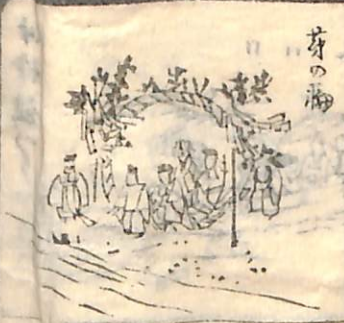 茅の輪